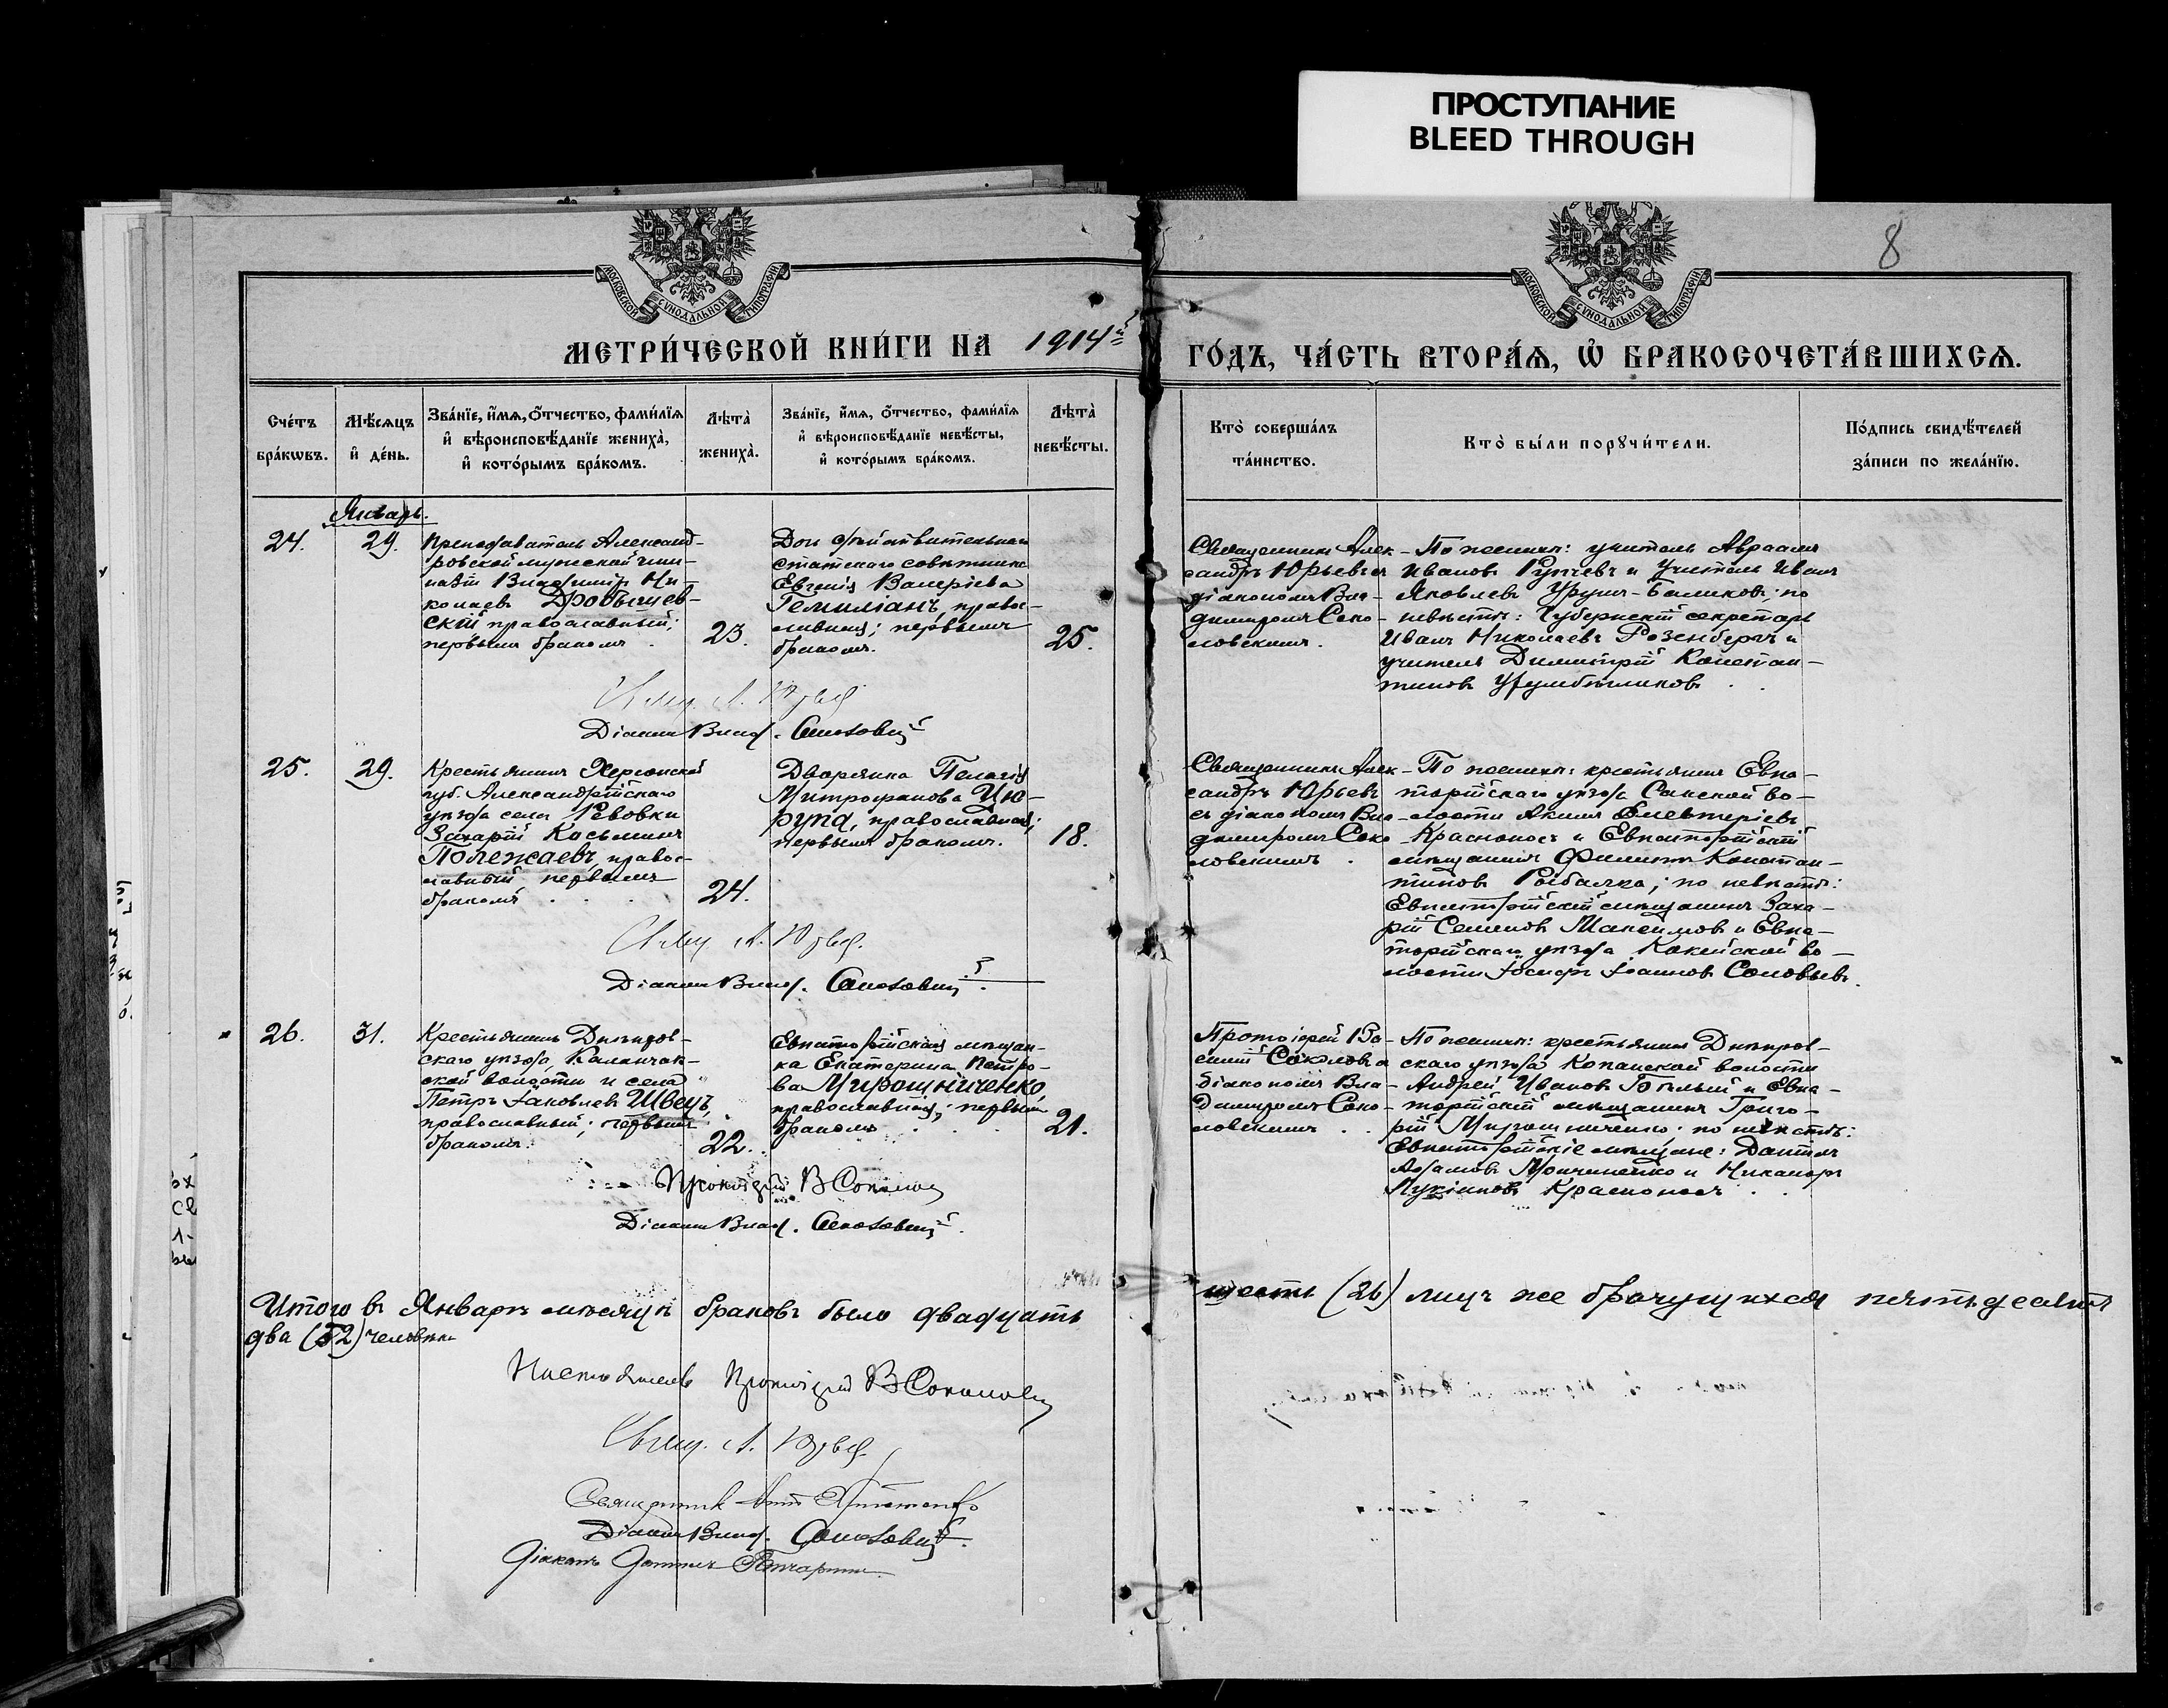 ПРОСТУПАНИЕ
BLEED THROUGH
8
МОСКОВСКОЙ СУНОДАЛЬНОЙ ТИПОГРАФІИ
МОСКОВСКОЙ СУНОДАЛЬНОЙ ТИПОГРАФІИ
МЕТРИ́ЧЕСКОЙ КНИ́ГИ НА 1914й
ГО́ДЪ, ЧА́СТЬ ВТОРА́Я, Ѡ БРАКОСОЧЕТА́ВШИХСЯ.
Сче́тъ
бра́кѡвъ.
Мѣ́сяцъ
и҆ де́нь.
Зва́нїе, и҆́мя, ѻ҆́тчество, фами́лїя
и҆ вѣроисповѣ́данїе жениха̀,
и҆ кото́рымъ бра́комъ.
Лѣ́та̀
жениха̀.
Зва́нїе, и҆́мя, ѻ҆́тчество, фами́лїя
и҆ вѣроисповѣ́данїе невѣ́сты,
и҆ кото́рымъ бра́комъ.
Лѣ́та̀
невѣ́сты.
Кто̀ соверша́лъ
та́инство.
Кто̀ бы́ли порꙋчи́тели.
По́дпись свидѣ́телей
за́писи по жела́нїю.
Январь.
24.
29.
Преподаватель Александ-
ровской мужской гим-
назіи Владиміръ Ни-
колаевъ Дробышев-
скій православный;
первымъ бракомъ
23.
Дочь дѣйствительнаго
статскаго совѣтника
Евгенія Валеріева
Гемиліанъ, право-
славная; первымъ
бракомъ.
25.
Священникъ Алек-
сандръ Юрьевъ съ
діакономъ Вла-
диміромъ Соко-
ловскимъ.
По женихѣ: учитель Авраамъ
Ивановъ и учитель Иванъ
Яковлевъ Урумъ-Баликовъ; по
невѣстѣ: Губернскій секретарь
Иванъ Николаевъ Розенбергъ и
учитель Димитрій Констан-
тиновъ
Свящ. А. Юрьев
Діаконъ Влад. Соколовскій
25.
29.
Крестьянинъ Херсонской
губ. Александрійскаго
уѣзда села Ревовки
Захарій Косьминъ
Полежаевъ, право-
славный, первымъ
бракомъ
24.
Дворянка Пелагія
Митрофанова Цю-
рупа, православная;
первымъ бракомъ.
18.
Священникъ Алек-
сандръ Юрьевъ
съ діакономъ Вла-
диміромъ Соко-
ловскимъ.
По женихѣ: крестьянинъ Евпа-
торійскаго уѣзда Сакской во-
лости Акимъ Елевтеріевъ
Красноносъ и Евпаторійскій
мѣщанинъ Филиппъ Констан-
тиновъ Рыбалка; по невѣстѣ:
Евпаторійскій мѣщанинъ Заха-
рій Семеновъ Максимовъ и Евпа-
торійскаго уѣзда Кокейской во-
лости Іосифъ Іоанновъ Соловьевъ.
Свящ А. Юрьев.
Діаконъ Влад. Соколовскій.
26.
31.
Крестьянинъ Днѣпров-
скаго уѣзда, Каланчак-
ской волости и села
Петръ Іаковлевъ Швецъ,
православный; первымъ
бракомъ.
22.
Евпаторійская мѣщан-
ка Екатерина Петро-
ва Мирошниченко,
православная; первымъ
бракомъ
21.
Протоіерей Ва-
силій Соколовъ съ
діакономъ Вла-
диміромъ Соко-
ловскимъ
По женихѣ: крестьянинъ Днѣпров-
скаго уѣзда Копанской волости
Андрей Ивановъ Бѣлый и Евпа-
торійскій мѣщанинъ Григо-
рій Мирошниченко; по невѣстѣ:
Евпаторійскіе мѣщане: Даніилъ
Адамовъ и Никаноръ
Лукіановъ Красноносъ
Протоіерей В Соколов
Діаконъ Влад. Соколовскій.
Итого въ Январѣ мѣсяцѣ браковъ было двадцать
шесть (26) лицъ же брачущихся пятьдесятъ
два (52) человѣка
Настоятель Протоіерей В Соколов
Свящ. А. Юрьев.
Священникъ
Діаконъ Влад. Соколовскій.
Діаконъ